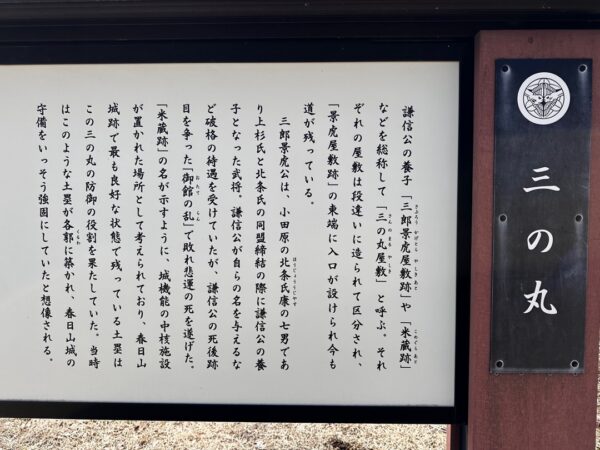 三の丸
謙信公の養子「三郎景虎屋敷跡」や「米蔵跡」
などを総称して「三の丸屋敷」と呼ぶ。それ
ぞれの屋敷は段違いに造られて区分され、
「景虎屋敷跡」の東端に入口が設けられ今も
道が残っている。
三郎景虎公は、小田原の北条氏康の七男であ
り上杉氏と北条氏の同盟締結の際に謙信公の養
子となった武将。謙信公が自らの名を与えるな
ど破格の待遇を受けていたが、謙信公の死後跡
目を争った「御館の乱」で敗れ悲運の死を遂げた。
「米蔵跡」の名が示すように、城機能の中核施設
が置かれた場所として考えられており、春日山
城跡で最も良好な状態で残っている土塁は
この三の丸の防御の役割を果たしていた。当時
はこのような土塁が各郭に築かれ、春日山城の
守備をいっそう強固にしていたと想像される。